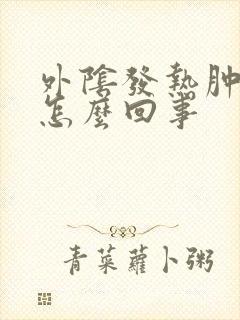 外陰發熱肿
怎麼回事
青菜蘿卜粥